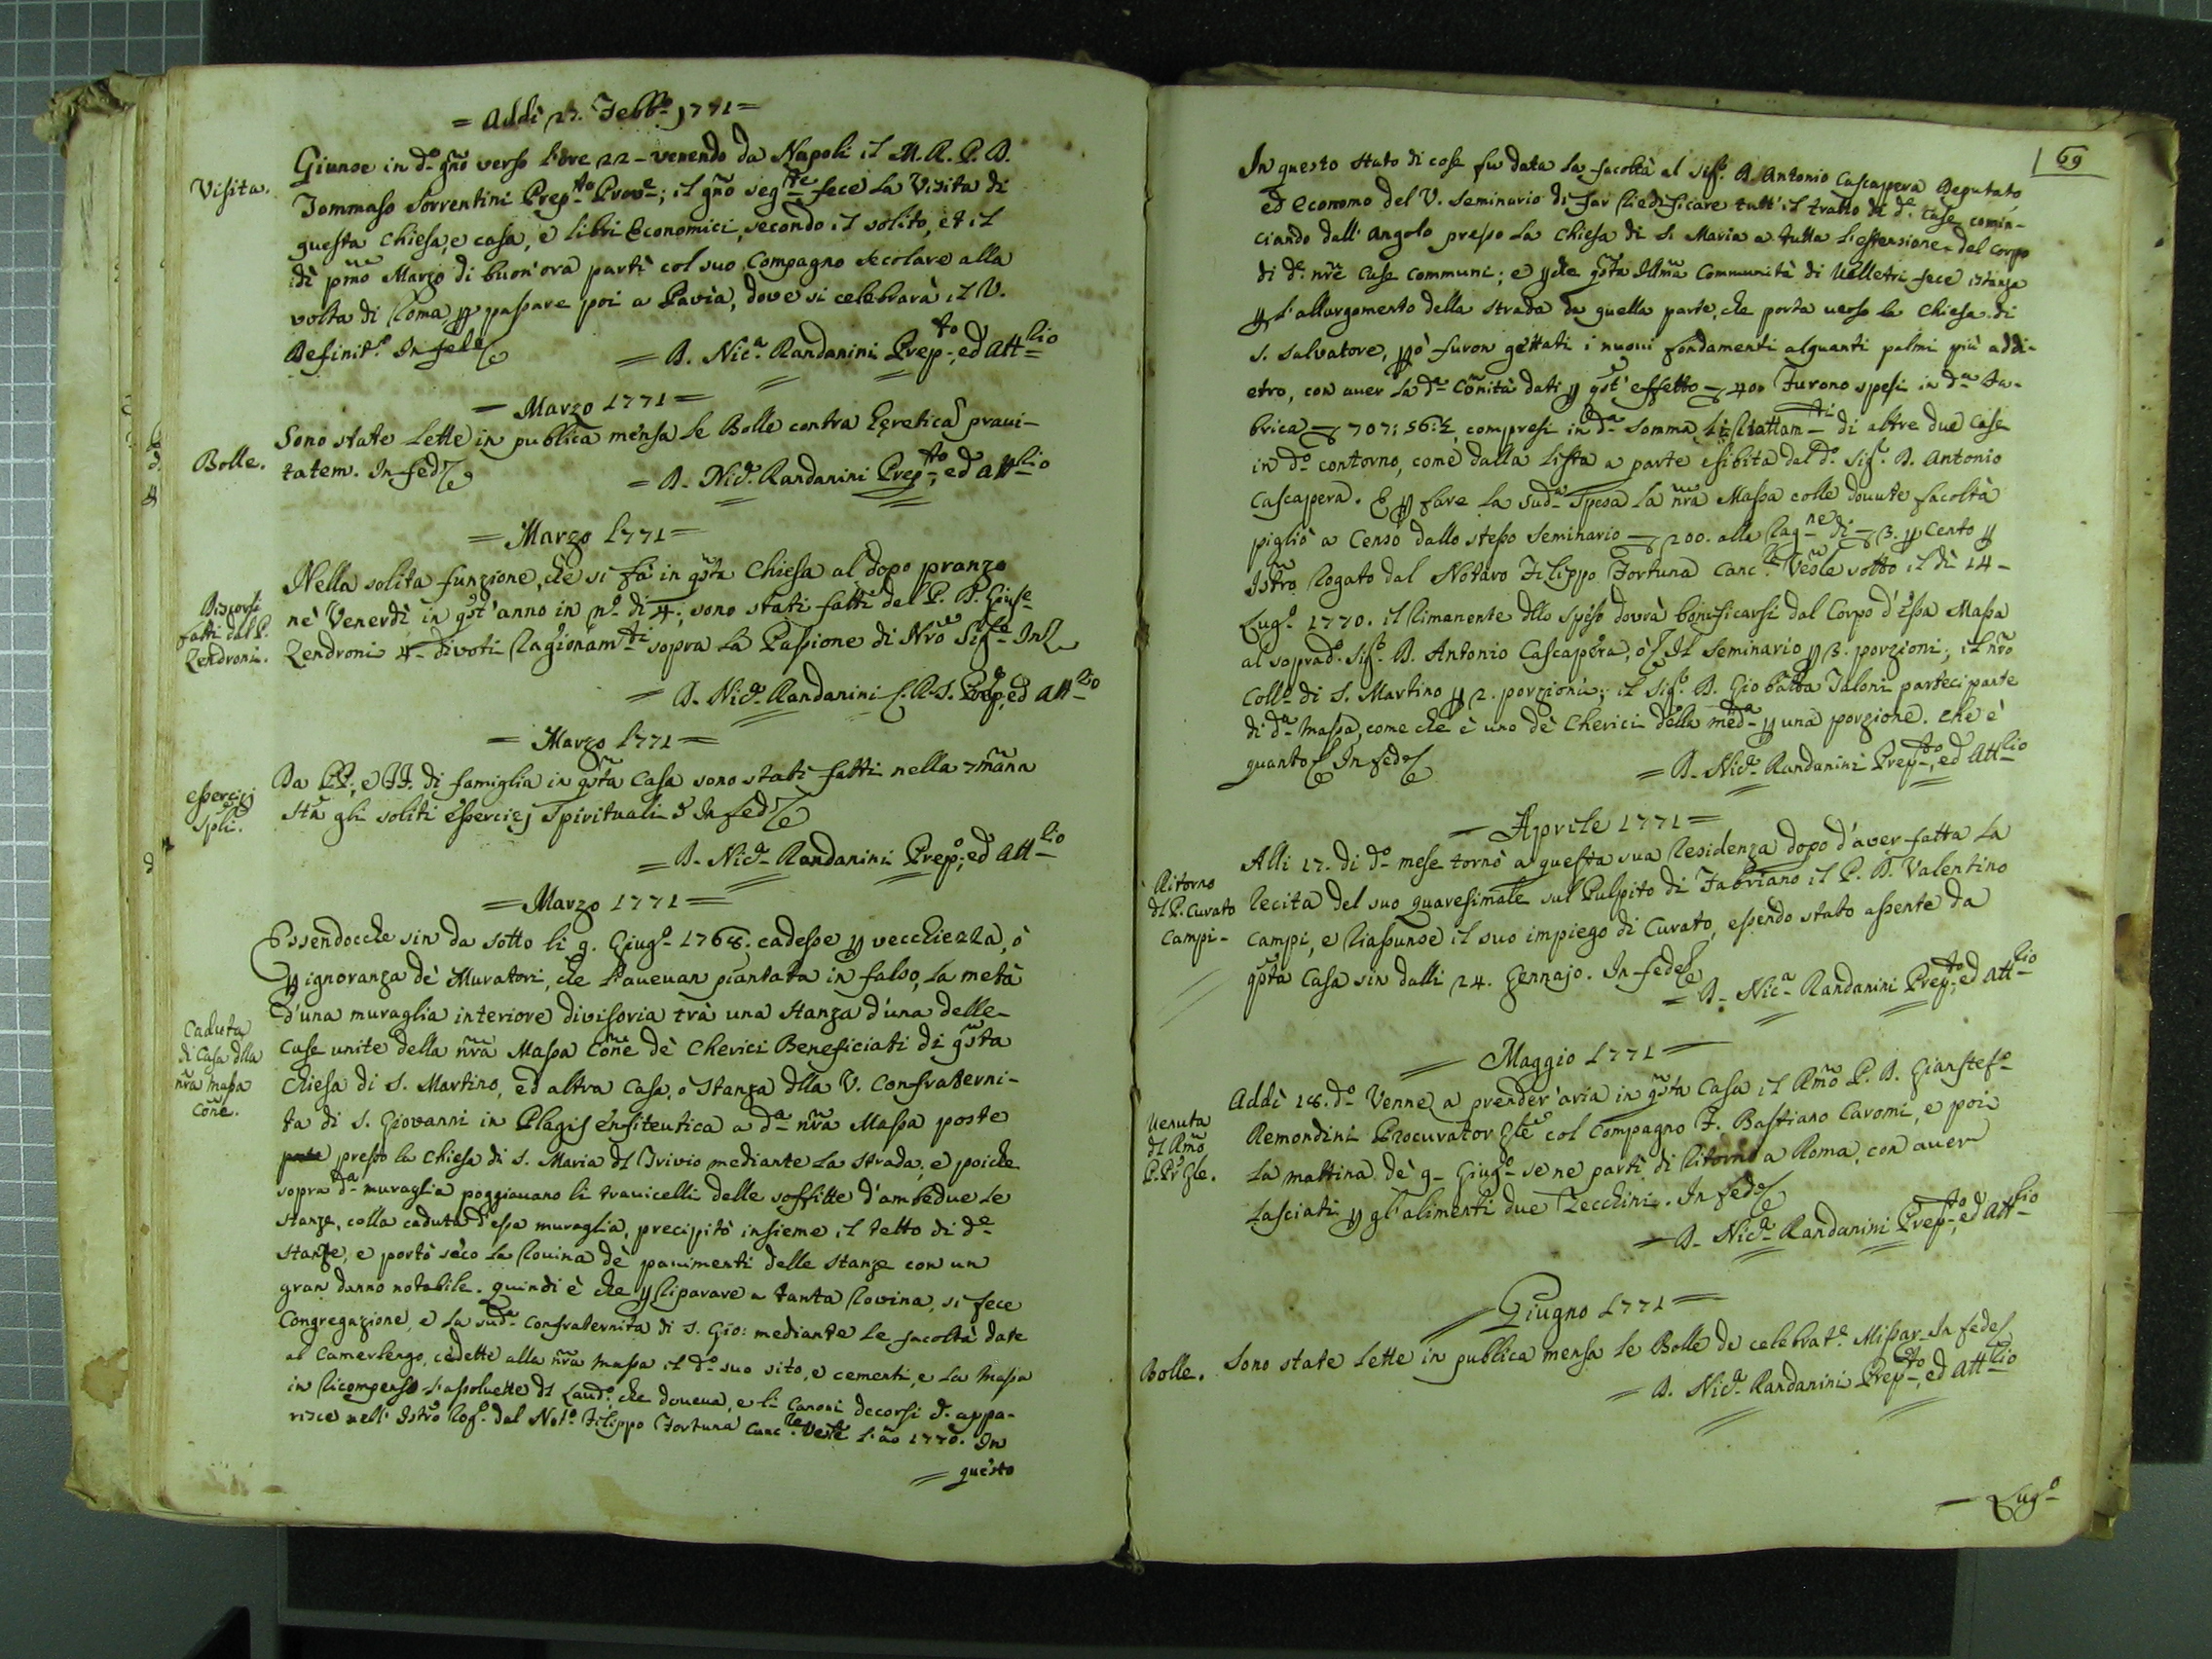 = Addì 27. Febb.º 1771 =
Visita.
Giunse in d.º gño verso l'ore 22 - venendo da Napoli il M. R. P. D.
Tommaso Sorrentini Prep.to Prov.e; il gño seg.te fece la Visita di
questa Chiesa, e casa, e libri Economici, secondo il solito, et il
dì pmo Marzo di buon'ora partì col suo Compagno secolare alla
volta di Roma p passare poi a Pavia, dove si celebrarà il V.
Definit.º In fede
= D. Nic.a Randanini Prep.to, ed Att.rio
= Marzo 1771 =
Bolle.
Sono state lette in publica mensa le Bolle contra hęretica pravi-
tatem. In fede
= D. Nic.a Randanini Prep.to, ed Att.rio
= Marzo 1771 =
Discorsi
fatti dal P.
Zendroni.
Nella solita funzione, che si fà in gsta Chiesa al dopo pranzo
nè Venerdì in gst'anno in nº. di 4; sono stati fatti dal P. D. Gius.e
Zendroni 4 - divoti Ragionam.ti sopra la Passione di Nro Sig.re In
= D. Nic.a Randanini C.R.S. Prep.º, ed Att.rio
= Marzo 1771 =
essercizj
spli.
Da PP., e FF. di famiglia in gsta Casa sono stati fatti nella 7mana
sta gli soliti essercizj Spirituali In fede
= D. Nic.a Randanini Prep.º, ed Att.rio
= Marzo 1771 =
Caduta
di Casa dlla
nra massa
Coñe.
Essendocche sin da sotto li 9. Giug.º 1768. cadesse p vecchiezza, ò
p ignoranza de' Muratori, che l'avevan piantata in falso, la metà
d'una muraglia interiore divisoria trà una stanza d'una delle
case unite della nra Massa Coñe de' Cherici Beneficiati di gsta
Chiesa di S. Martino, ed altra Casa, o stanza dlla V. Confraterni-
ta di S. Giovanni in Plagis enfiteutica a d.a nra Massa poste
presso la Chiesa di S. Maria dl Trivio mediante la strada; e poiche
sopra d.a muraglia poggiavano li travicelli delle soffitte d'ambedue le
stanze, colla caduta d'essa muraglia, precipitò insieme il tetto di d.e
stanze, e portò seco la Rovina de' pavimenti delle stanze con un
gran danno notabile. quindi è che p Riparare a tanta Rovina, si fece
Congregazione, e la sud.a Confraternita di S. Gio: mediante le facoltà date
al Camerlengo, cedette alla nra Massa il d.º suo sito, e cementi, e la Massa
in Ricompensa l'assolvette dl Laud.º, che doveva, e li Canoni decorsi appa-
risce nell'Istro Rog.º dal Not.º Filippo Fortuna Canc.re Vesle l'año 1770. In
= questo
69
In questo stato di cose fu data la facoltà al Sig.r D. Antonio Cascapera Deputato
ed Economo del V. Seminario di far Riedificare tutt'il tratto di d.e case comin-
ciando dall'angolo presso la Chiesa di S. Maria a tutta l'estensione del Corpo
di d.e nre Case Communi; e pche gsta Illma Communità di Velletri fece istanza
p l'allargamento della strada da quella parte, che porta verso la Chiesa di
S. Salvatore, pò furon gettati i nuovi fondamenti alquanti palmi più addi-
etro, con aver la d.a Coñità dati p gst'effetto 400 Furono spesi in d.a fa-
brica 707: 56: ½, compresi in d.a somma li Riattam.ti di altre due Case
in d.º contorno, come dalla lista a parte esibita dal d.º Sig.r D. Antonio
Cascapera. E p fare la sud.a spesa la nra Massa colle dovute facoltà
pigliò a Censo dallo stesso Seminario 200. alla Rag.ne di 3. p Cento p
Istro Rogato dal Notaro Filippo Fortuna Canc.re Vesle sotto il dì 14 -
Lug.º 1770. il Rimanente dllo speso dovrà bonificarsi dal Corpo d'essa Massa
al soprad.º Sig.r D. Antonio Cascapera, ò Il Seminario p 3. porzioni; il nro
Coll.º di S. Martino p 2. porzioni; il Sig.r D. Gio batta Taloni partecipante
di d.a Massa, come che è uno de' Cherici della med.a p una porzione. che è
quanto In fede
= D. Nic.a Randanini Prep.to, ed Att.rio
= Aprile 1771 =
Ritorno
dl P. Curato
Campi -
Alli 17. di d.º mese tornò a questa sua Residenza dopo d'aver fatta la
Recita del suo quaresimale sul Pulpito di Fabriano il P. D. Valentino
Campi, e Riassunse il suo impiego di Curato, essendo stato assente da
gsta Casa sin dalli 24. Gennajo. In fede
= D. Nic.a Randanini Prep.to, ed Att.rio
= Maggio 1771 =
Venuta
dl Rmo
P. Pr Gle.
Addì 18. d.º Venne a prender'aria in gsta Casa il Rmo P. D. Gianstef.º
Remondini Procurator Gle col Compagno F. Bastiano Caromi, e poi
la mattina de' 9 - Giug.º se ne partì di Ritorno a Roma, con aver
lasciati p gl'alimenti due Zecchini. In fede
= D. Nic.a Randanini Prep.to, ed Att.rio
= Giugno 1771 =
Bolle.
Sono state lette in publica mensa le Bolle de celebrat.e Missar. In fede
= D. Nic.a Randanini Prep.to, ed Att.rio
= Lug.º